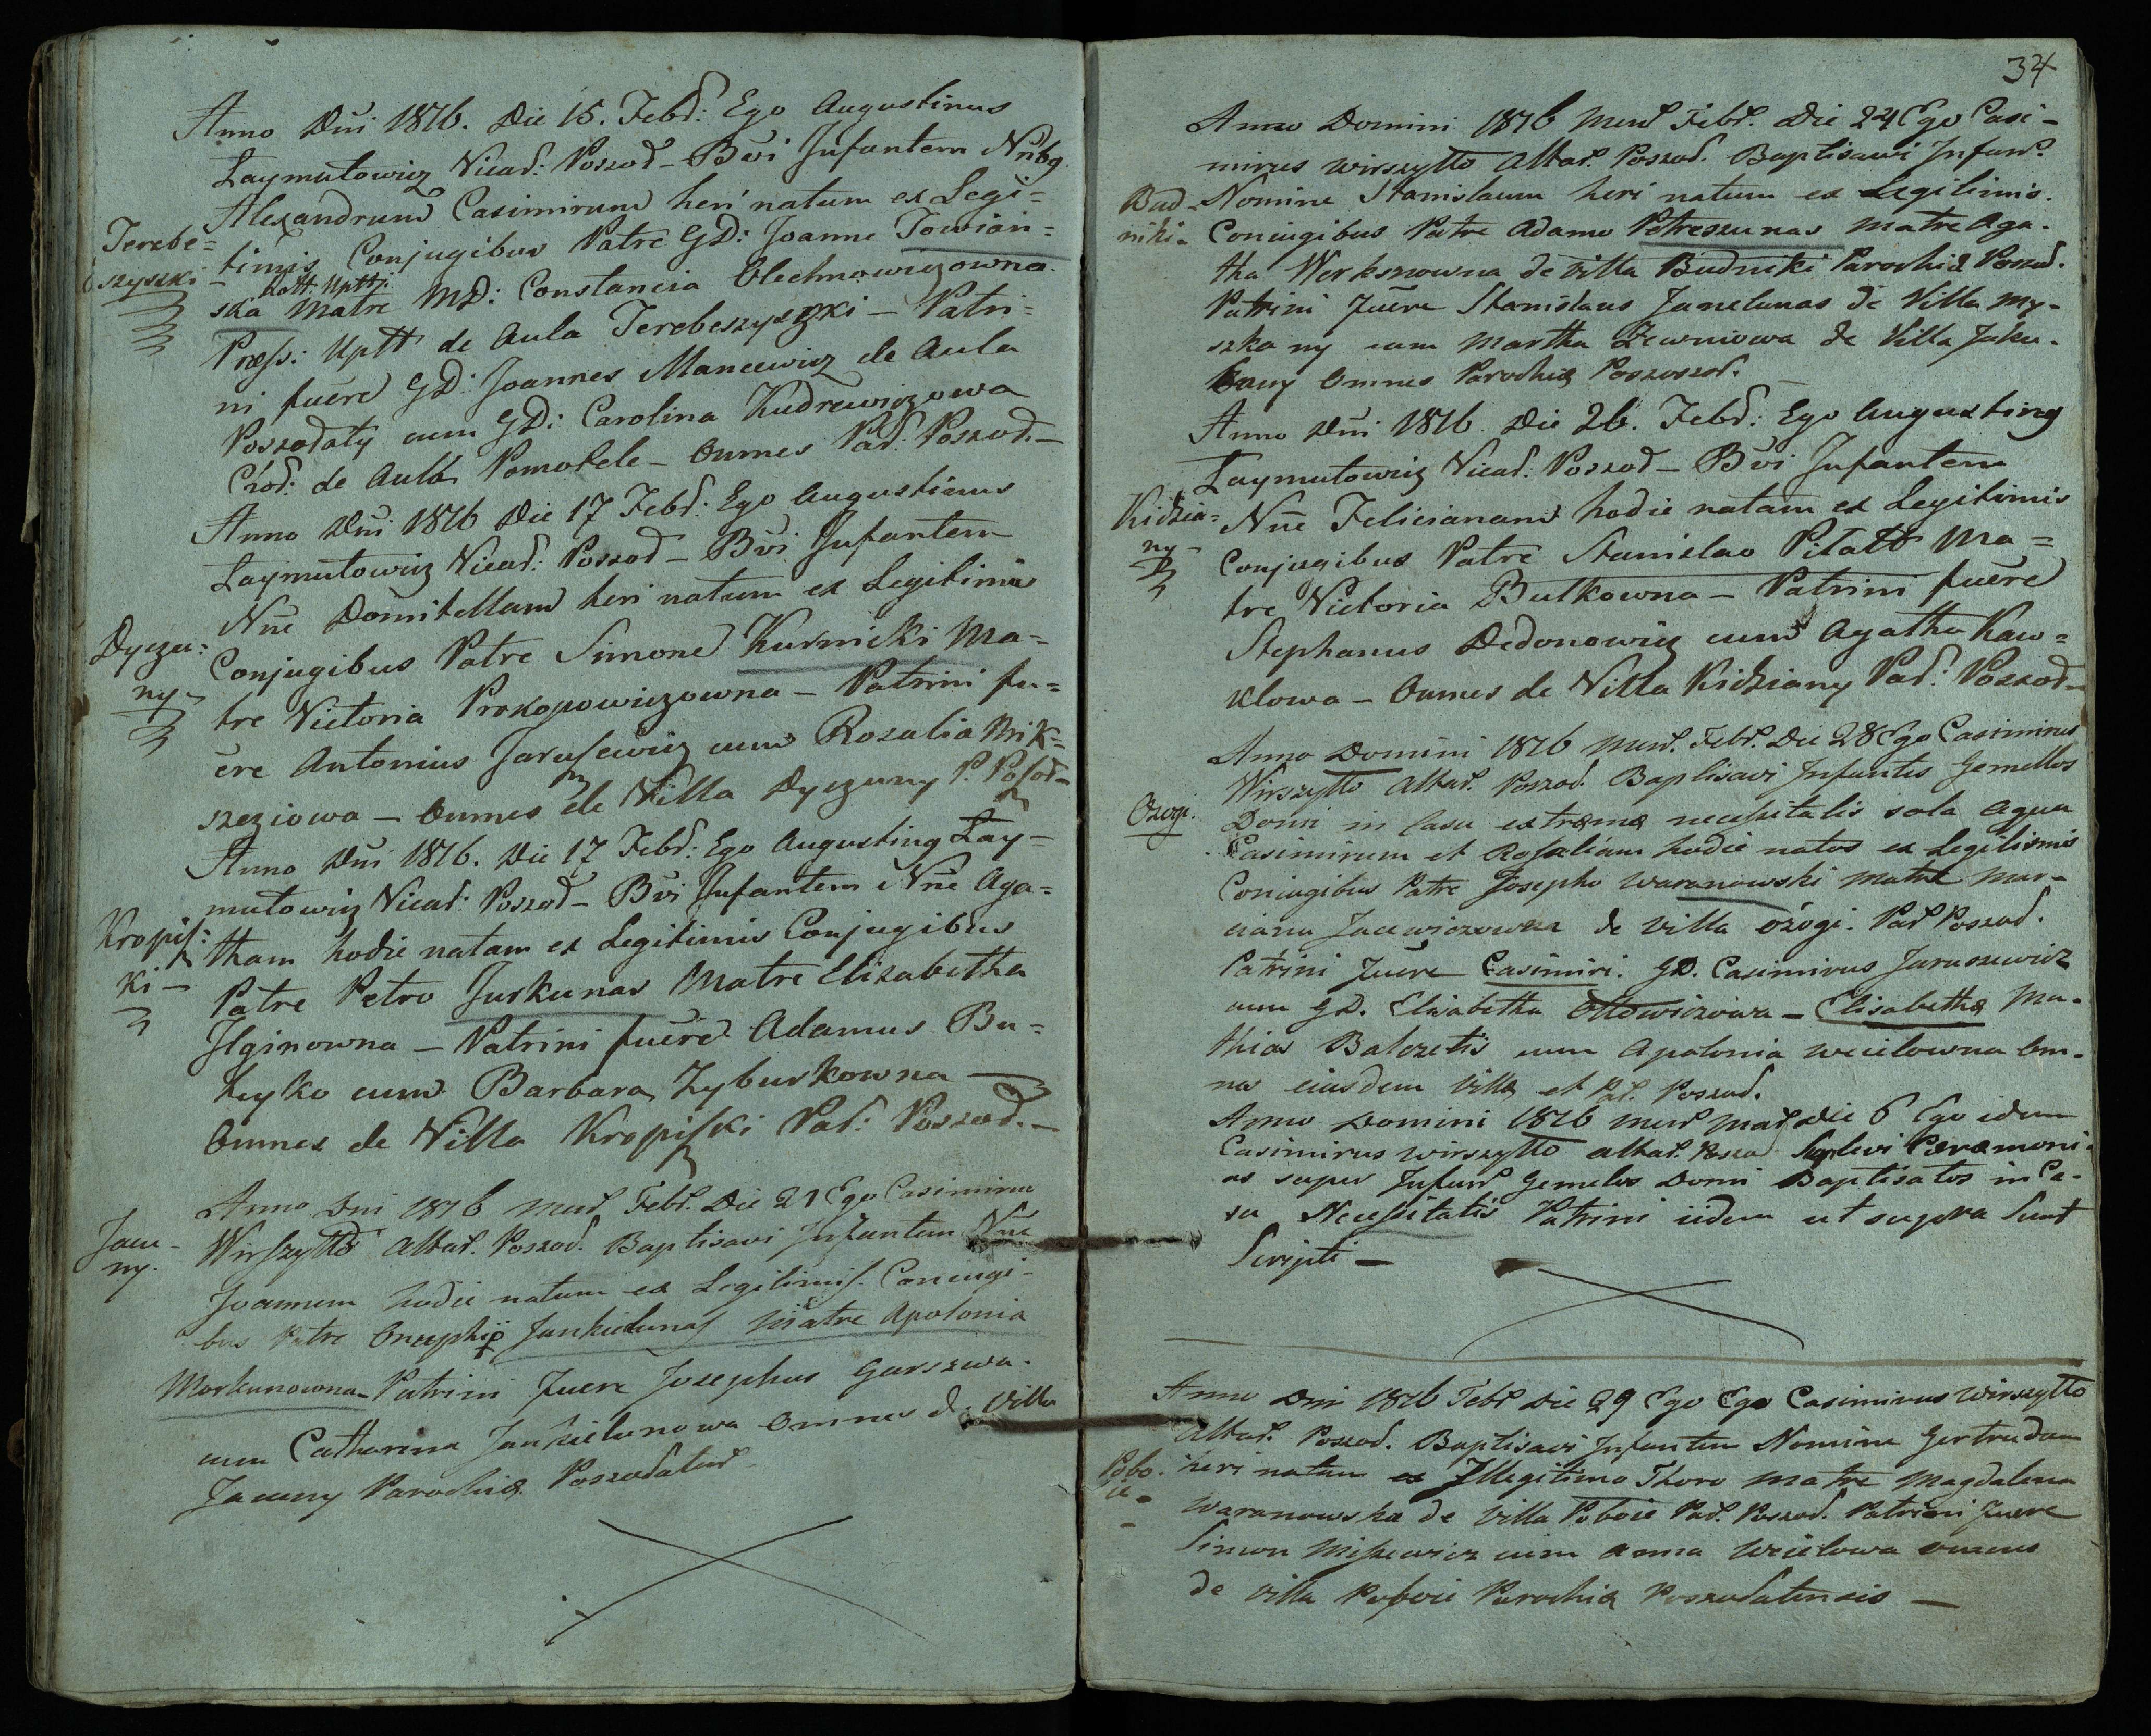 Anno Dni 1816. Die 15. Febr: Ego Augustinus
Laymutowicz Vicar: Poszod – Bvi Infantem Nnbg
Alexandrum Casimirum heri natum ex Legi=
Terebe=
szyszki –
timis Conjugibus Patre GD: Joanne Towian=
Rott. Uptt:
ska Matre MD: Constancia Olechnowiczowna
Press: Uptt de Aula Terebeszyszki – Patri=
ni fuere GD: Joannes Mancewicz de Aula
Poszodaty cum GD: Carolina Kudrewiczowa
Chod: de Aula Pomotele – Omnes Par: Poszod. –
Anno Dni 1816 Die 17 Febr: Ego Augustinus
Laymutowicz Vicar: Poszod – Bvi Infantem
Nne Domitellam heri natam ex Legitimis
Dyczu=
ny –
Conjugibus Patre Simone Kurnicki Ma=
tre Victoria Prokopowiczowna – Patrini fu=
ere Antonius Jarusewicz cum Rozalia Mik=
szeziowa – Omnes de Villa Dyczuny P. Posod –
Anno Dni 1816. Die 17 Febr: Ego Augusting Lay=
mutowicz Vicar: Poszod – Bvi Infantem Nne Aga=
Kropis:
ki –
tham hodie natam ex Legitimis Conjugibus
Patre Petro Juskunas Matre Elizabetha
Ilginowna – Patrini fuere Adamus Bu=
tryko cum Barbara Zyburkowna –
Omnes de Villa Kropiski Par: Poszod. –
Anno Dni 1816 Mens Febr. Die 21 Ego Casimirus
Jacu –
ny.
Wirszytto Altar. Poszod. Baptisavi Infantem Nne
Joannem hodie natum ex Legitimis. Coniugi –
bus Patre Onuphio Junkielunas Matre Apolonia
Morkunowna – Patrini fuere Josephus Garszwa.
cum Catharina Junkielunowa Omnes de Villa
Jacuny Parochia Poszodatur
34
Anno Domini 1816 Mens Febr. Die 24 Ego Casi –
mirus Wirszytto Altar. Poszod. Baptisavi Infan.
Bud –
niki –
Nomine Stanislaum heri natum ex Legitimis.
Coniugibus Patre Adamo Petreszunas Matre Aga.
tha Werksznowna de Villa Budniki Parochia Poszod.
Patrini fuere Stanislaus Junelunas de Villa My –
szka ny cum Martha Zewniowa de Villa Jaku.
bany Omnes Parochia Poszoszod.
Anno Dni 1816 Die 26. Febr: Ego Augusting
Laymutowicz Vicar: Poszod – Bvi Infantem
Kidzia=
ny –
Nne Felicianam hodie natam ex Legitimis
Conjugibus Patre Stanislao Pitatt Ma=
tre Victoria Butkowna – Patrini fuere
Stephanus Dedonowicz cum Agatha Kaw=
klowa – Omnes de Villa Kidziany Par: Poszod –
Anno Domini 1816 Mens. Febr. Die 28 Ego Casimirus
Wirszytto Altar. Poszod. Baptisavi Infantes Gemellos
Ozogi.
Domi in Casu extrema necessitatis sola aqua
Casimirum et Rosaliam hodie natos ex Legitimis
Coniugibus Patre Josepho Waranowski Matre Mar –
cianna Jacewiczowna de Villa ożogi. Par Poszod.
Patrini fuere Casimiri. GD. Casimirus Jaruszewicz
cum GD. Elisabetha Ottowiczowa – Elisabetha Ma –
thias Balczetis cum Apolonia Wcielowna Om –
nes eiusdem Villa et Par. Poszod.
Anno Domini 1816 Mens Mar Die 6 Ego idem
Casimirus Wirszytto altar. Poszo Suplevi Cæremoni –
as super Infan Gemelos Domi Baptisatos in Ca –
su Necessitatis Patrini iidem ut supra Sunt
Scripti –
Anno Dni 1816 Febr Die 29 Ego Ego Casimirus Wirszytto
Altar. Poszod. Baptisavi Infantem Nomine Gertrudam
Pobo.
ie –
heri natam ex Illegitimo Thoro Matre Magdalena
Waranowska de Villa Poboie Par. Poszod. Patrini fuere
Simon Misiewicz cum Anna Wcielowa omnes
de Villa Poboie Parochia Poszodatensis –